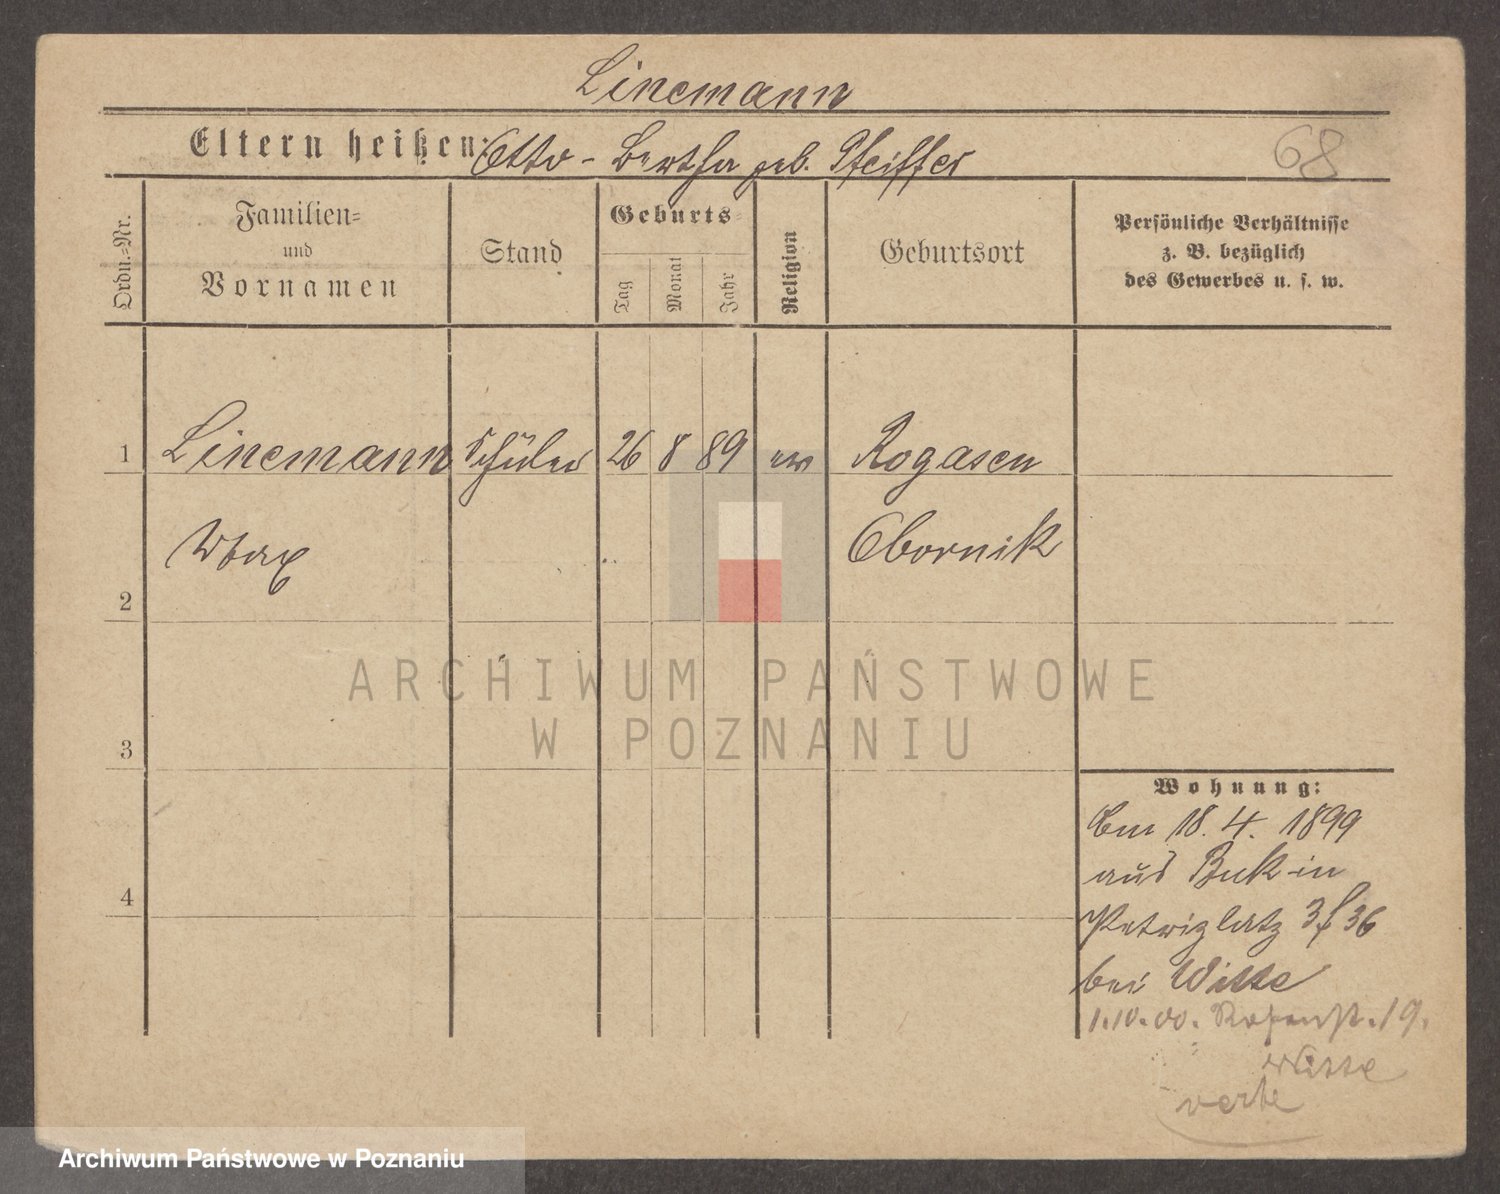 Linemann
Eltern heißen: Otto - Bertha geb. Pfeiffer
68
Ordn.-Nr.
Familien-
und
Vornamen
Stand
Geburts-
Tag
Monat
Jahr
Religion
Geburtsort
Persönliche Verhältnisse
z. B. bezüglich
des Gewerbes u. s. w.
1 Linemann Schüler 26 8 89 ev Rogasen
Max Obornik
2
ARCHIWUM PAŃSTWOWE
W POZNANIU
3
4
Wohnung:
Am 18. 4. 1899
aus Buk in
Petriplatz 3 36
bei Witte
1.10.00. Rosenst. 19.
Witte
verte
Archiwum Państwowe w Poznaniu